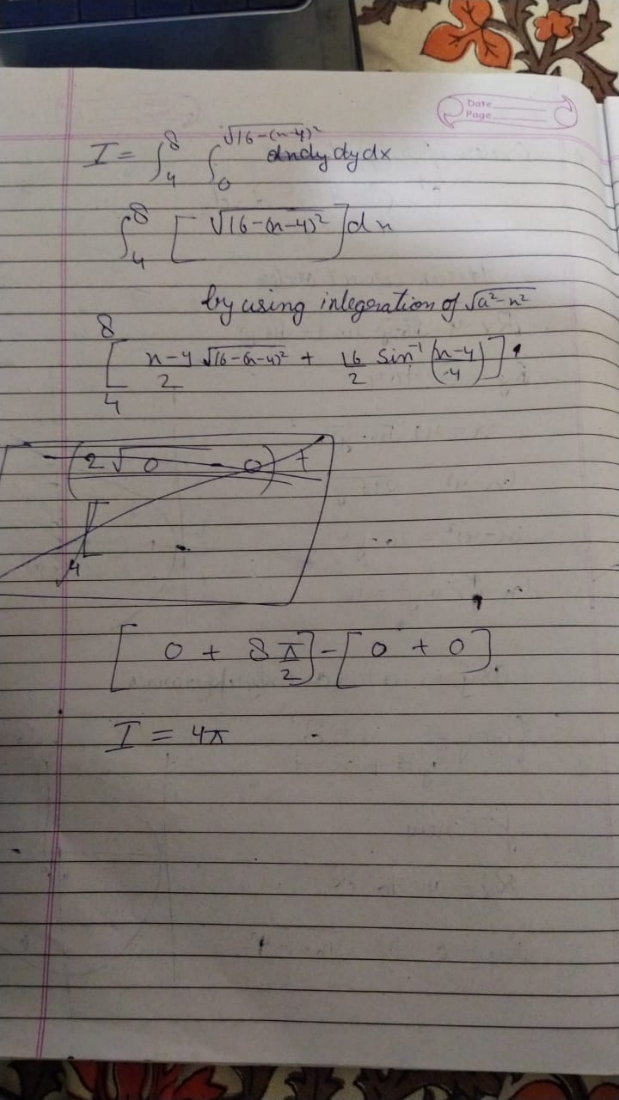 Date
Page
I = ∫₄⁸ ∫₀^√(16-(x-4)²) dy dx
∫₄⁸ [√(16-(x-4)²)] dx
by using integeration of √(a²-x²)
[ (x-4)/2 √(16-(x-4)²) + 16/2 Sin⁻¹ ((x-4)/4) ]₄⁸
[ 0 + 8 π/2 ] - [ 0 + 0 ].
I = 4π